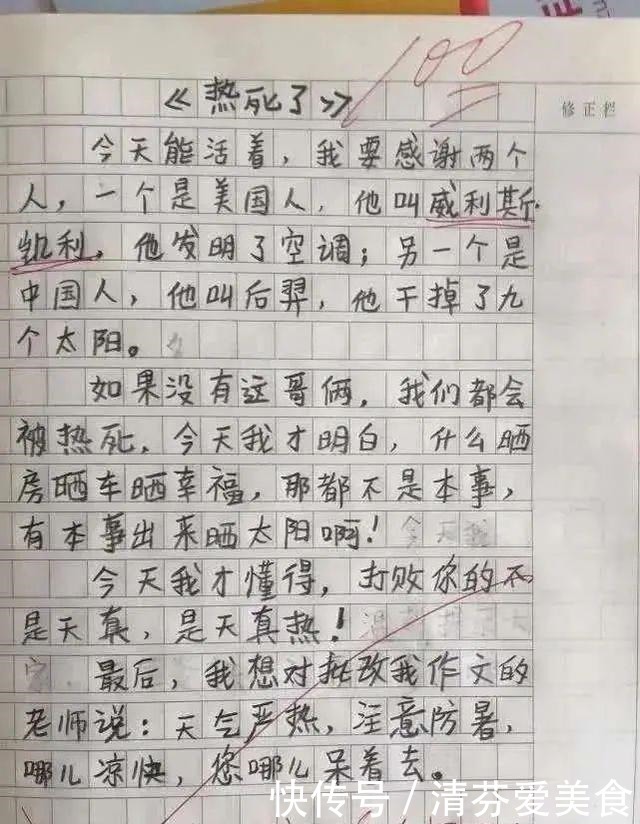 100
《热死了》
修正栏
今天能活着，我要感谢两个
人，一个是美国人，他叫威利斯·
凯利，他发明了空调；另一个是
中国人，他叫后羿，他干掉了九
个太阳。
如果没有这哥俩，我们都会
被热死，今天我才明白，什么晒
房晒车晒幸福，那都不是本事，
有本事出来晒太阳啊！
今天我才懂得，打败你的不
是天真，是天真热！
最后，我想对批改我作文的
老师说：天气严热，注意防暑，
哪儿凉快，您哪儿呆着去。
快传号／清芬爱美食